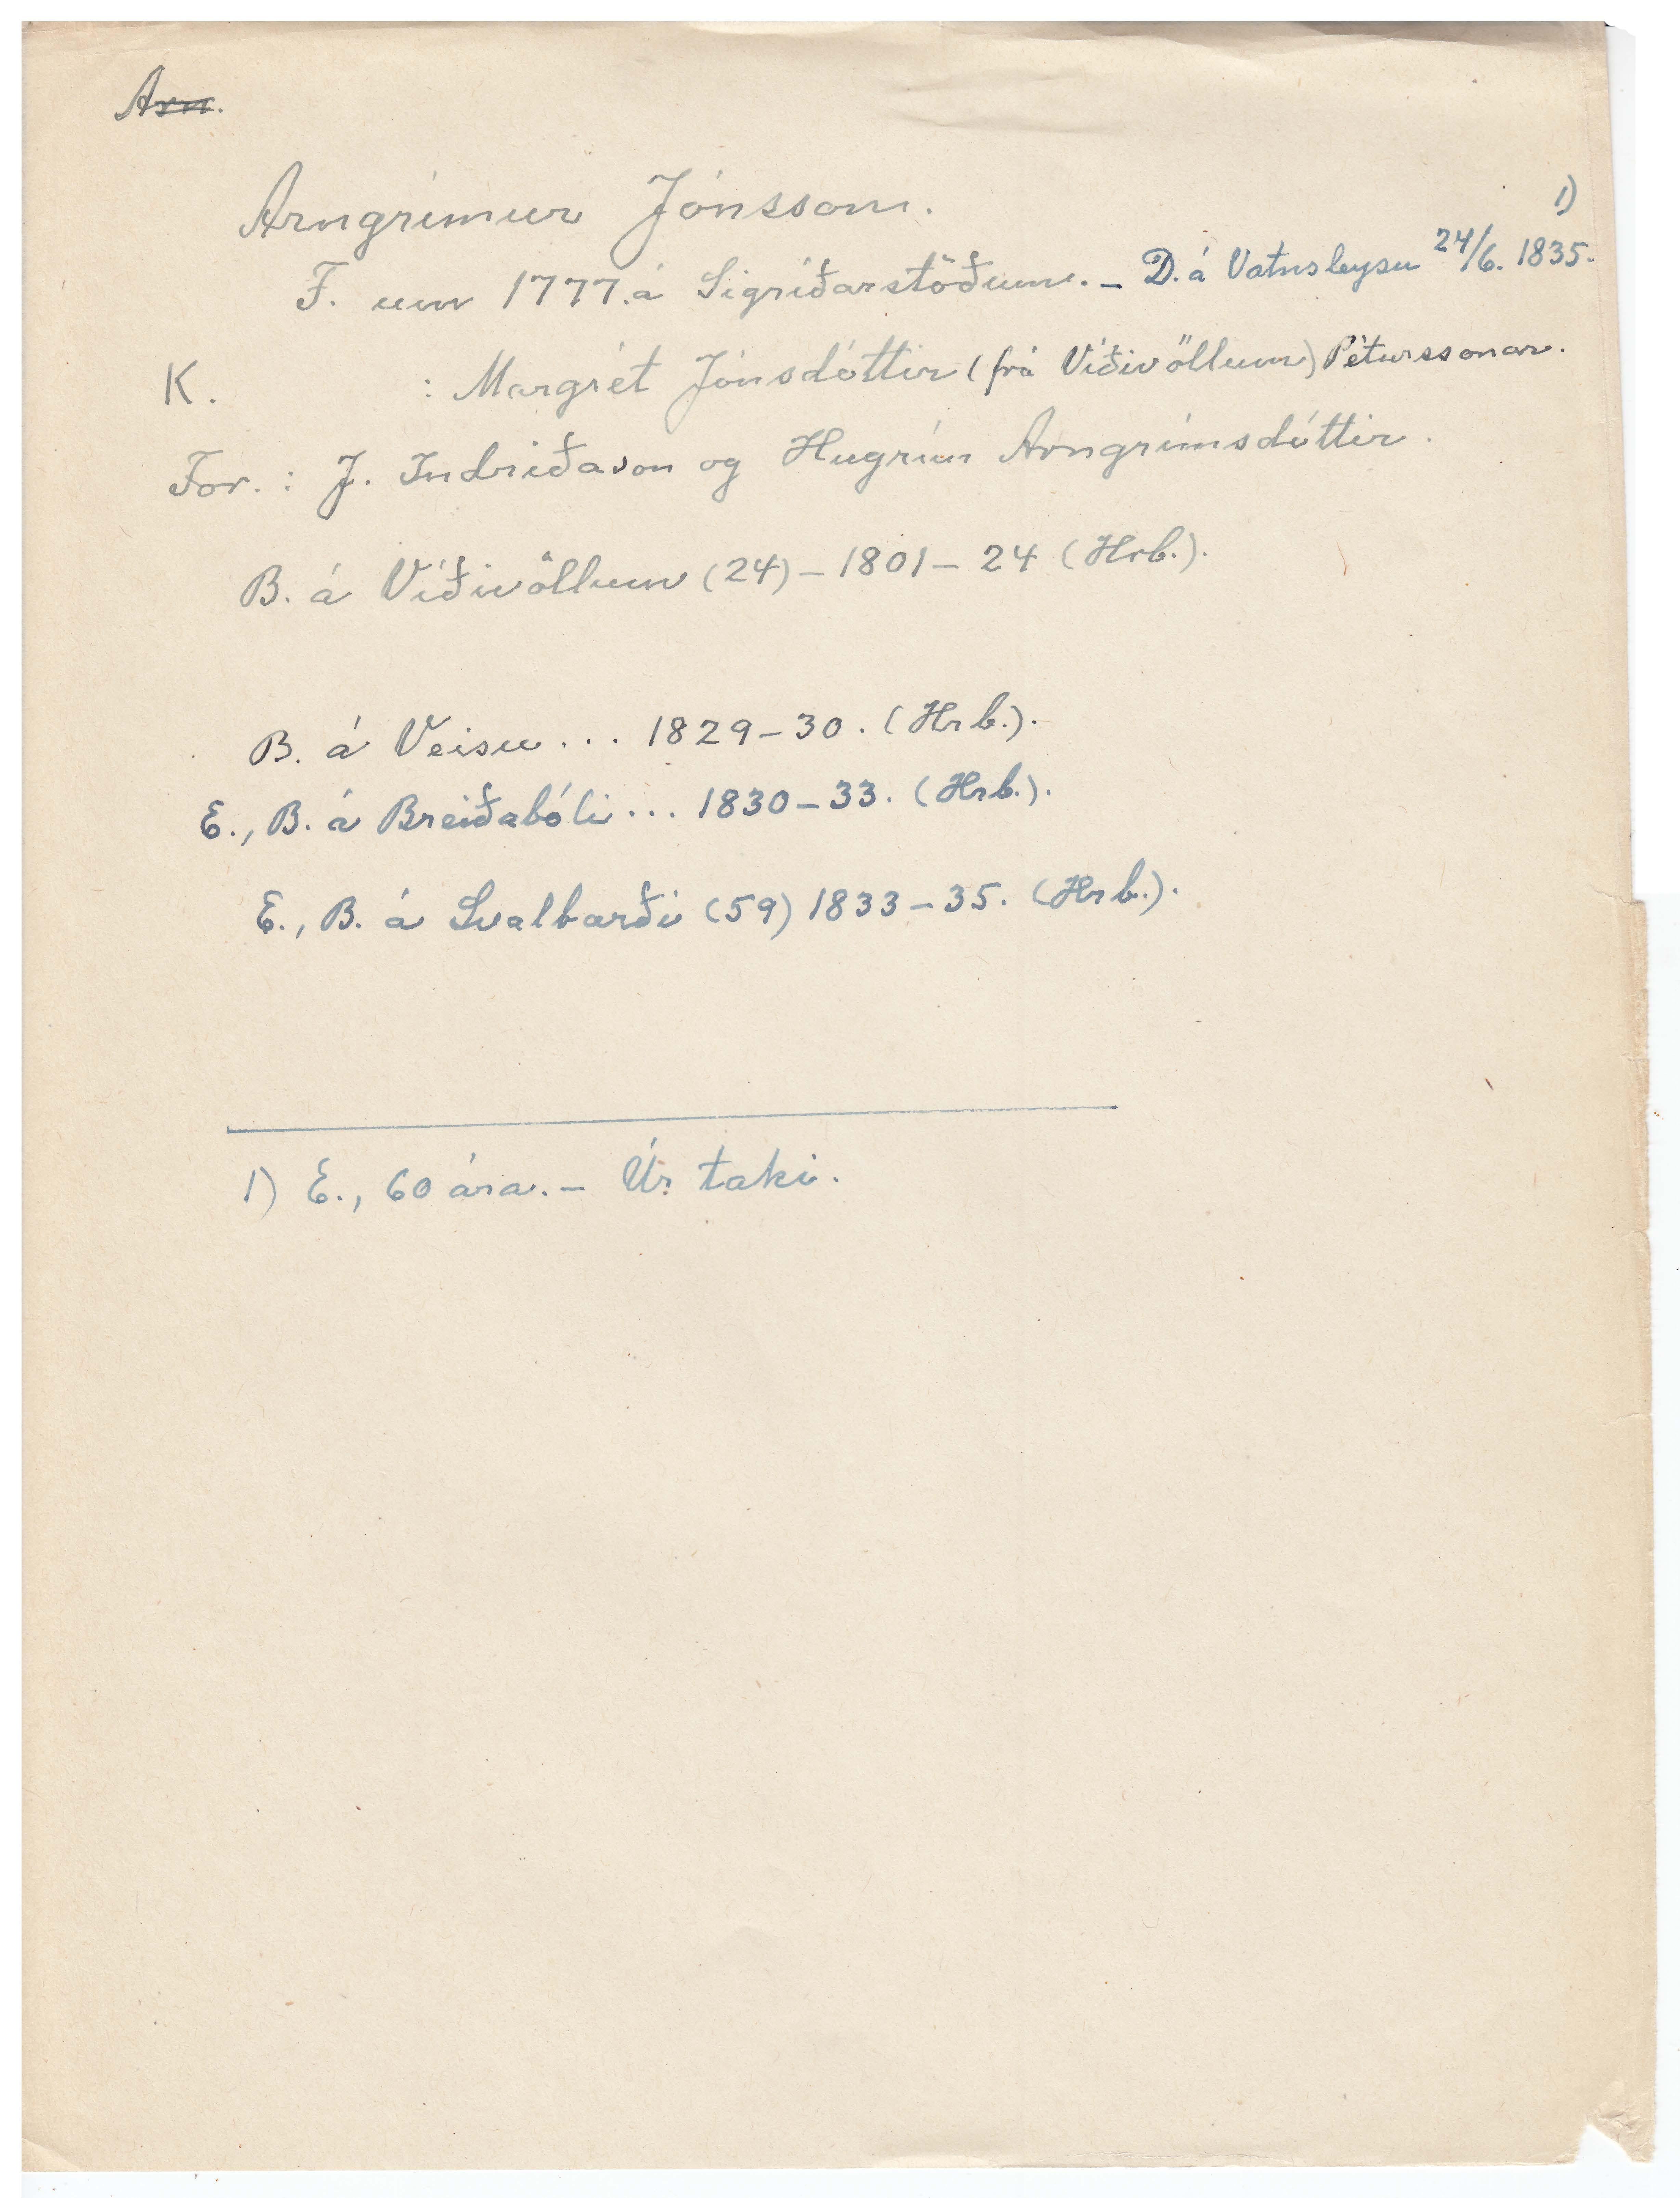 Arn.
Arngrímur Jónsson.
F. um 1777. á Sigríðarstöðum. – D. á Vatnsleysu 24/6. 1835. 1)
K. : Margrét Jónsdóttir (frá Víðivöllum) Péturssonar.
For. : J. Indriðason og Hugrún Arngrímsdóttir.
B. á Víðivöllum (24) – 1801 – 24 (Hrb.).
B. á Veisu ... 1829 – 30. (Hrb.).
E., B. á Breiðabóli ... 1830 – 33. (Hrb.).
E., B. á Svalbarði (59) 1833 – 35. (Hrb.).
1) E., 60 ára. – Úr taki.